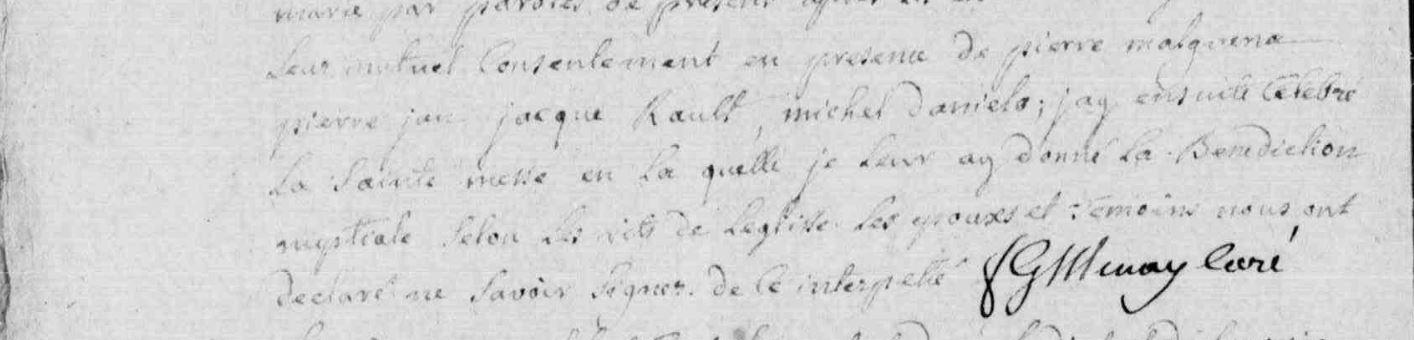 marie par paroles de present après
Leur mutuel Consentement en presence de pierre malquena
pierre jan jacque Rault, michel daniels; jay ensuite Celebré
La Sainte messe en la quelle je leur ay donné La Benediction
nuptiale Selon les rits de leglisse. Les epouxs et temoins nous ont
declaré ne Savoir signer. de Ce interpellé curé